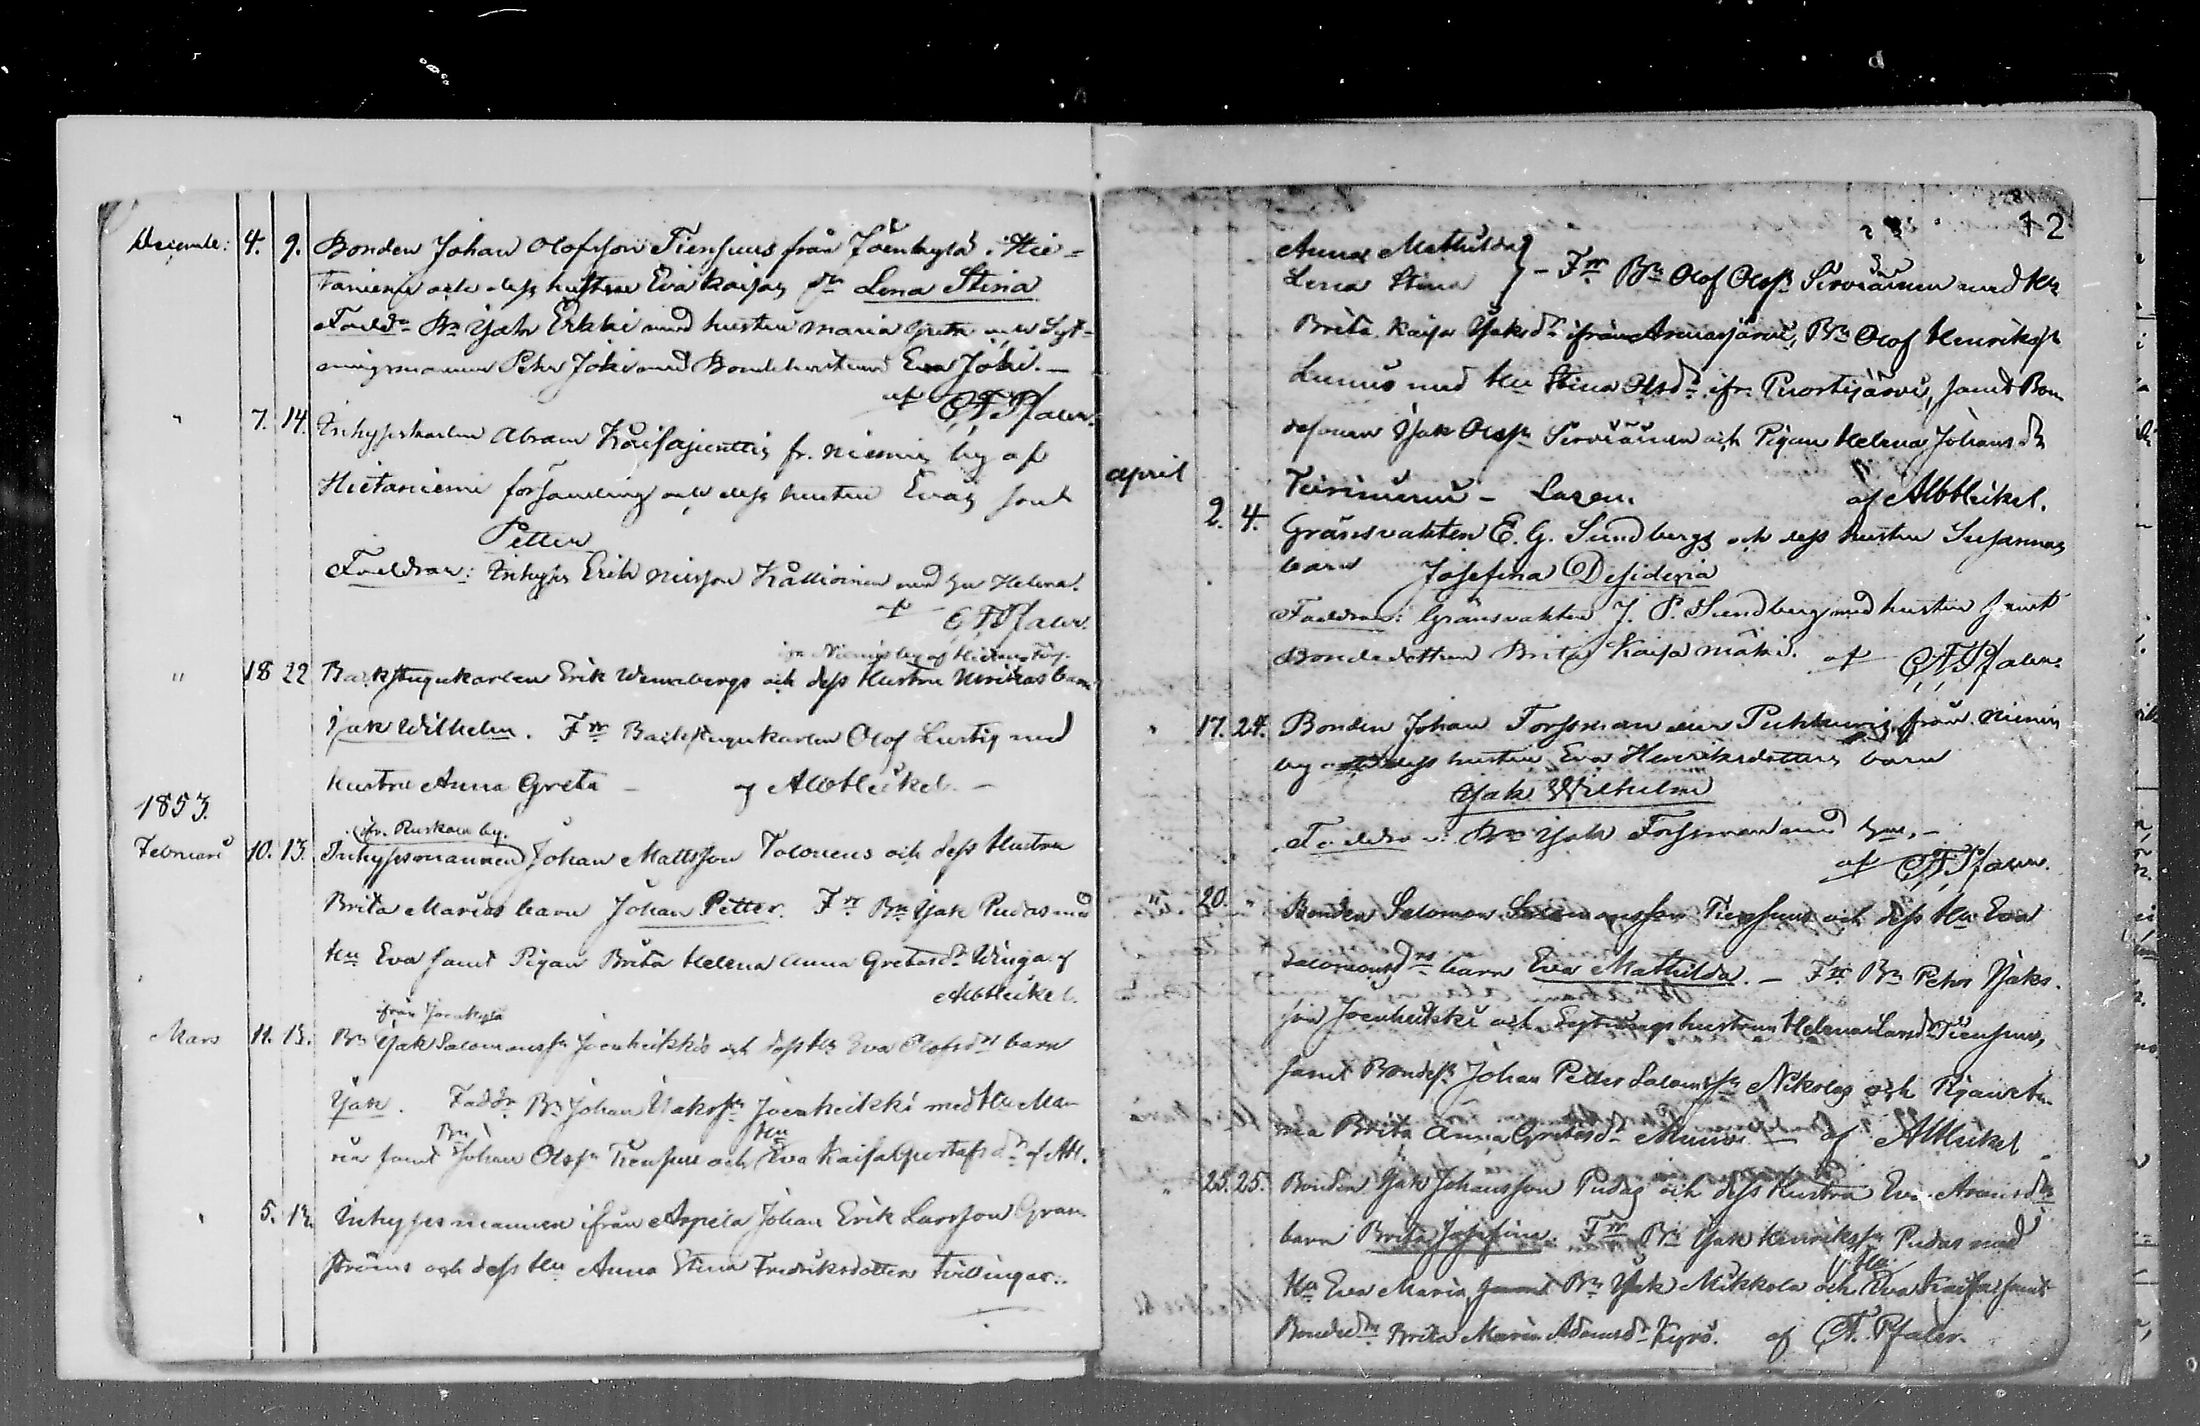 Decemb: 4. 9. Bonden Johan Olofsson Tiensuus från Joenkylä i Hie-
taniemi och dess hustru Eva Kaisas dr Lena Stina
Faddr Bn Isak Erkki med hustru Maria Greta och Syt-
ningsmannen Peter Joki med Bondehustrun Eva Joki. —
af C. F. Pfaler.
" 7. 14. Inhyseskarlen Abram Kaisajunttis fr. Niemis by af
Hietaniemi församling och dess hustru Evas son
Petter
Faddrar: Inhyses Erik Nilsson Kallioinen med hu Helena.
af C. F. Pfaler.
ifr. Niemis by af Hietan. förs.
" 18 22 Backstugukarlen Erik Wennbergs och dess Hustru Ulrikas barn
Isak Wilhelm. Frr Backstugukarlen Olof Lustig med
hustru Anna Greta — af AlbHeikel. —
1853.
ifr. Ruskola by.
Februari 10. 13. Inhysesmannen Johan Mattsson Talonens och dess Hustru
Brita Marias barn Johan Petter. Frr Bn Isak Pudas med
Hu Eva samt Pigan Brita Helena Anna Gretasdr Winga af
AlbHeikel.
ifrån Joenkylä
Mars 11. 13. Bn Isak Salomonssn Joenheikkis och dess Hu Eva Olofsdrs barn
Isak. Faddr Bn Johan Isakssn Joenheikki med Hu Ma-
Bn Hu
ria samt Johan Olssn Tiensuu och Eva Kaisa Gustafsdr af AH.
" 5. 13. Inhysesmannen ifrån Arpela Johan Erik Larsson Gran-
ströms och dess Hu Anna Stina Fredriksdotters tvillingar..
12
Anna Mathilda
Lena Stina } – Frr Bn Olof Olofsn Sirviäinen med Hu
Brita Kaisa Isaksdr ifrån Armasjärvi, Bn Olof Henrikssn
Lumus med Hu Stina Olsdr ifr. Puortijärvi, samt Bon-
desonen Isak Olofssn Sirviäinen och Pigan Helena Johansdr
april
– af AlbHeikel.
2. 4. Gränsvakten E. G. Sundbergs och dess hustru Susannas
barn Josefina Desideria
Faddrar: Gränsvakten J. P. Sundberg med hustru samt
Bondedottren Brita Kaisa Mäki. af C. F. Pfaler.
" 17. 24. Bonden Johan Forssman från Niemis
by och dess hustru Eva Henriksdotters barn
Isak Wilhelm
Faddrar: Bn Isak Forssman med hu. –
af C. F. Pfaler.
" 20. " Bonden Salomon Salomonsson Tiensuus och dess Hu Eva
Salomonsdrs barn Eva Mathilda. — Frr Bn Peter Isaks-
son Joenheikki och Sytningshustrun Helena Larsdr Tiensuu,
samt Bondesn Johan Petter Salomssn Nikolas och Pigan
Brita Anna Gretasdr — af AlbHeikel
" 25. 25. Bonden Isak Johansson Pudas och dess Hustru Eva Aramsdrs
barn Brita Josefina. Frr Bn Isak Henrikssn Pudas med
Hu
Hu Eva Maria, samt Bn Isak Mikkola och Eva Kaisa samt
Bondedr Brita Maria Adamsdr Kyrö. af C. F. Pfaler.